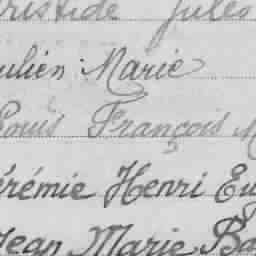 ristide Jules
ulien Marie
Louis François M
érémie Henri Eu
Jean Marie Ba